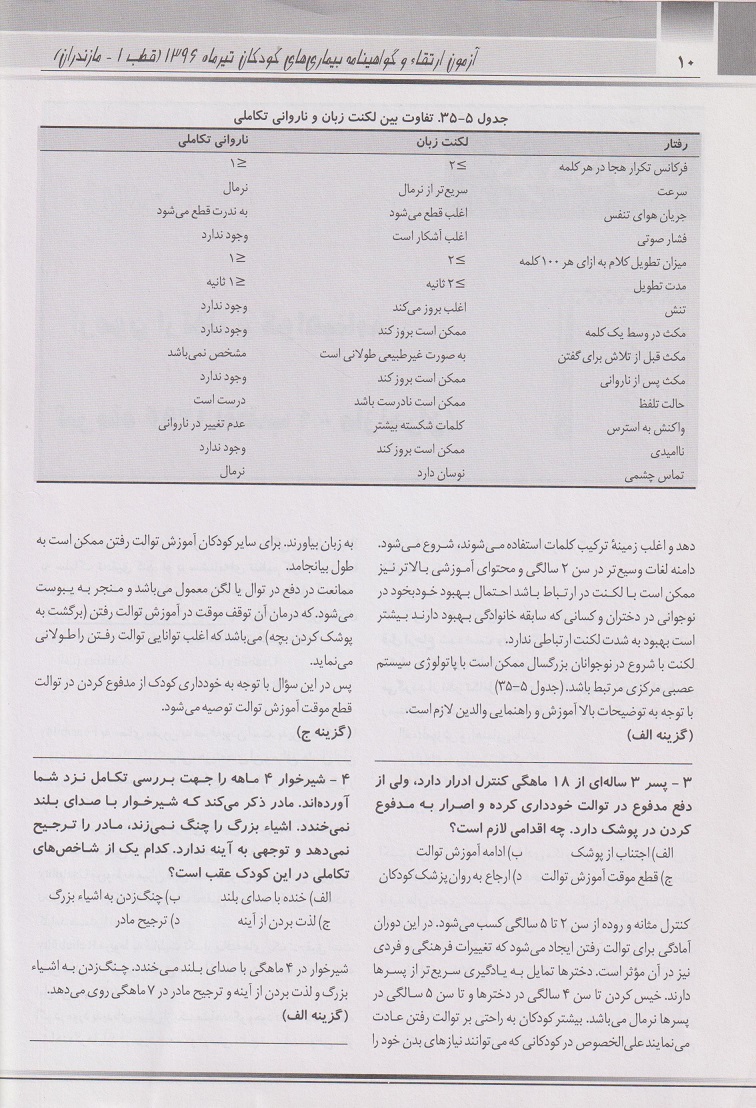 آزمون ارتقاء و گواهینامه بیماری‌های کودکان تیرماه ۱۳۹۶ (قطب ۱ - مازندران)
۱۰
جدول ۵-۳۵. تفاوت بین لکنت زبان و ناروانی تکاملی
رفتار لکنت زبان ناروانی تکاملی
فرکانس تکرار هجا در هر کلمه ≥۲ ≤۱
سرعت سریع‌تر از نرمال نرمال
جریان هوای تنفس اغلب قطع می‌شود به ندرت قطع می‌شود
فشار صوتی اغلب آشکار است وجود ندارد
میزان تطویل کلام به ازای هر ۱۰۰ کلمه ≥۲ ≤۱
مدت تطویل ≥۲ ثانیه ≤۱ ثانیه
تنش اغلب بروز می‌کند وجود ندارد
مکث در وسط یک کلمه ممکن است بروز کند وجود ندارد
مکث قبل از تلاش برای گفتن به صورت غیرطبیعی طولانی است مشخص نمی‌باشد
مکث پس از ناروانی ممکن است بروز کند وجود ندارد
حالت تلفظ ممکن است نادرست باشد درست است
واکنش به استرس کلمات شکسته بیشتر عدم تغییر در ناروانی
ناامیدی ممکن است بروز کند وجود ندارد
تماس چشمی نوسان دارد نرمال
دهد و اغلب زمینهٔ ترکیب کلمات استفاده می‌شوند، شروع می‌شود.
دامنه لغات وسیع‌تر در سن ۲ سالگی و محتوای آموزشی بالاتر نیز
ممکن است با لکنت در ارتباط باشد احتمال بهبود خودبخود در
نوجوانی در دختران و کسانی که سابقه خانوادگی بهبود دارند بیشتر
است بهبود به شدت لکنت ارتباطی ندارد.
لکنت با شروع در نوجوانان بزرگسال ممکن است با پاتولوژی سیستم
عصبی مرکزی مرتبط باشد. (جدول ۵-۳۵)
با توجه به توضیحات بالا آموزش و راهنمایی والدین لازم است.
(گزینه الف)
۳ - پسر ۳ ساله‌ای از ۱۸ ماهگی کنترل ادرار دارد، ولی از
دفع مدفوع در توالت خودداری کرده و اصرار به مدفوع
کردن در پوشک دارد. چه اقدامی لازم است؟
الف) اجتناب از پوشک ب) ادامه آموزش توالت
ج) قطع موقت آموزش توالت د) ارجاع به روان‌پزشک کودکان
کنترل مثانه و روده از سن ۲ تا ۵ سالگی کسب می‌شود. در این دوران
آمادگی برای توالت رفتن ایجاد می‌شود که تغییرات فرهنگی و فردی
نیز در آن مؤثر است. دخترها تمایل به یادگیری سریع‌تر از پسرها
دارند. خیس کردن تا سن ۴ سالگی در دخترها و تا سن ۵ سالگی در
پسرها نرمال می‌باشد. بیشتر کودکان به راحتی بر توالت رفتن عادت
می‌نمایند علی‌الخصوص در کودکانی که می‌توانند نیازهای بدن خود را
به زبان بیاورند. برای سایر کودکان آموزش توالت رفتن ممکن است به
طول بیانجامد.
ممانعت در دفع در توال یا لگن معمول می‌باشد و منجر به یبوست
می‌شود. که درمان آن توقف موقت در آموزش توالت رفتن (برگشت به
پوشک کردن بچه) می‌باشد که اغلب توانایی توالت رفتن را طولانی
می‌نماید.
پس در این سؤال با توجه به خودداری کودک از مدفوع کردن در توالت
قطع موقت آموزش توالت توصیه می‌شود.
(گزینه ج)
۴ - شیرخوار ۴ ماهه را جهت بررسی تکامل نزد شما
آورده‌اند. مادر ذکر می‌کند که شیرخوار با صدای بلند
نمی‌خندد. اشیاء بزرگ را چنگ نمی‌زند، مادر را ترجیح
نمی‌دهد و توجهی به آینه ندارد. کدام یک از شاخص‌های
تکاملی در این کودک عقب است؟
الف) خنده با صدای بلند ب) چنگ‌زدن به اشیاء بزرگ
ج) لذت بردن از آینه د) ترجیح مادر
شیرخوار در ۴ ماهگی با صدای بلند می‌خندد. چنگ‌زدن به اشیاء
بزرگ و لذت بردن از آینه و ترجیح مادر در ۷ ماهگی روی می‌دهد.
(گزینه الف)